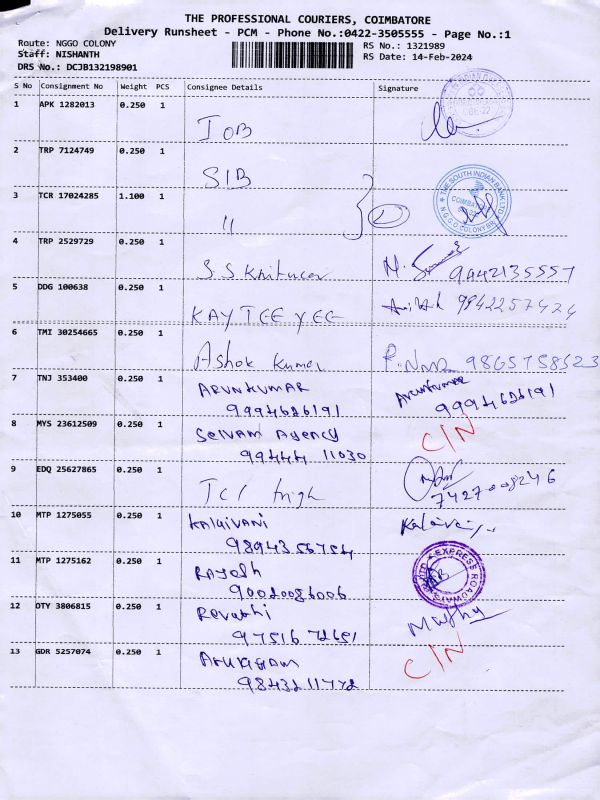 THE PROFESSIONAL COURIERS, COIMBATORE
Delivery Runsheet - PCM - Phone No.:0422-3505555 - Page No.:1
Route: NGGO COLONY
Staff: NISHANTH
DRS No.: DCJB132198901
RS No.: 1321989
RS Date: 14-Feb-2024
S No Consignment No Weight PCS Consignee Details Signature
1 APK 1282013 0.250 1
IOB
2 TRP 7124749 0.250 1
SIB
3 TCR 17024285 1.100 1
"
THE SOUTH INDIAN BANK LTD
COIMBATORE
N.G.G.O. COLONY BR
4 TRP 2529729 0.250 1
S.S 9442135557
5 DDG 100638 0.250 1
KAY TEE YEE 9942257424
6 TMI 30254665 0.250 1
Ashok Kumar 9865758523
7 TNJ 353400 0.250 1
ARUNKUMAR Arunkumar
9994626191 9994626191
8 MYS 23612509 0.250 1
Selvam Agency C/N
99444 11030
9 EDQ 25627865 0.250 1
TCI 7427008246
10 MTP 1275055 0.250 1
Kalaivani
9894356754
11 MTP 1275162 0.250 1
Rajesh EXPRESS ROADWAYS
90020086006
12 OTY 3806815 0.250 1
Revathi
97516 72651
13 GDR 5257074 0.250 1
Arukgam C/N
9843211772